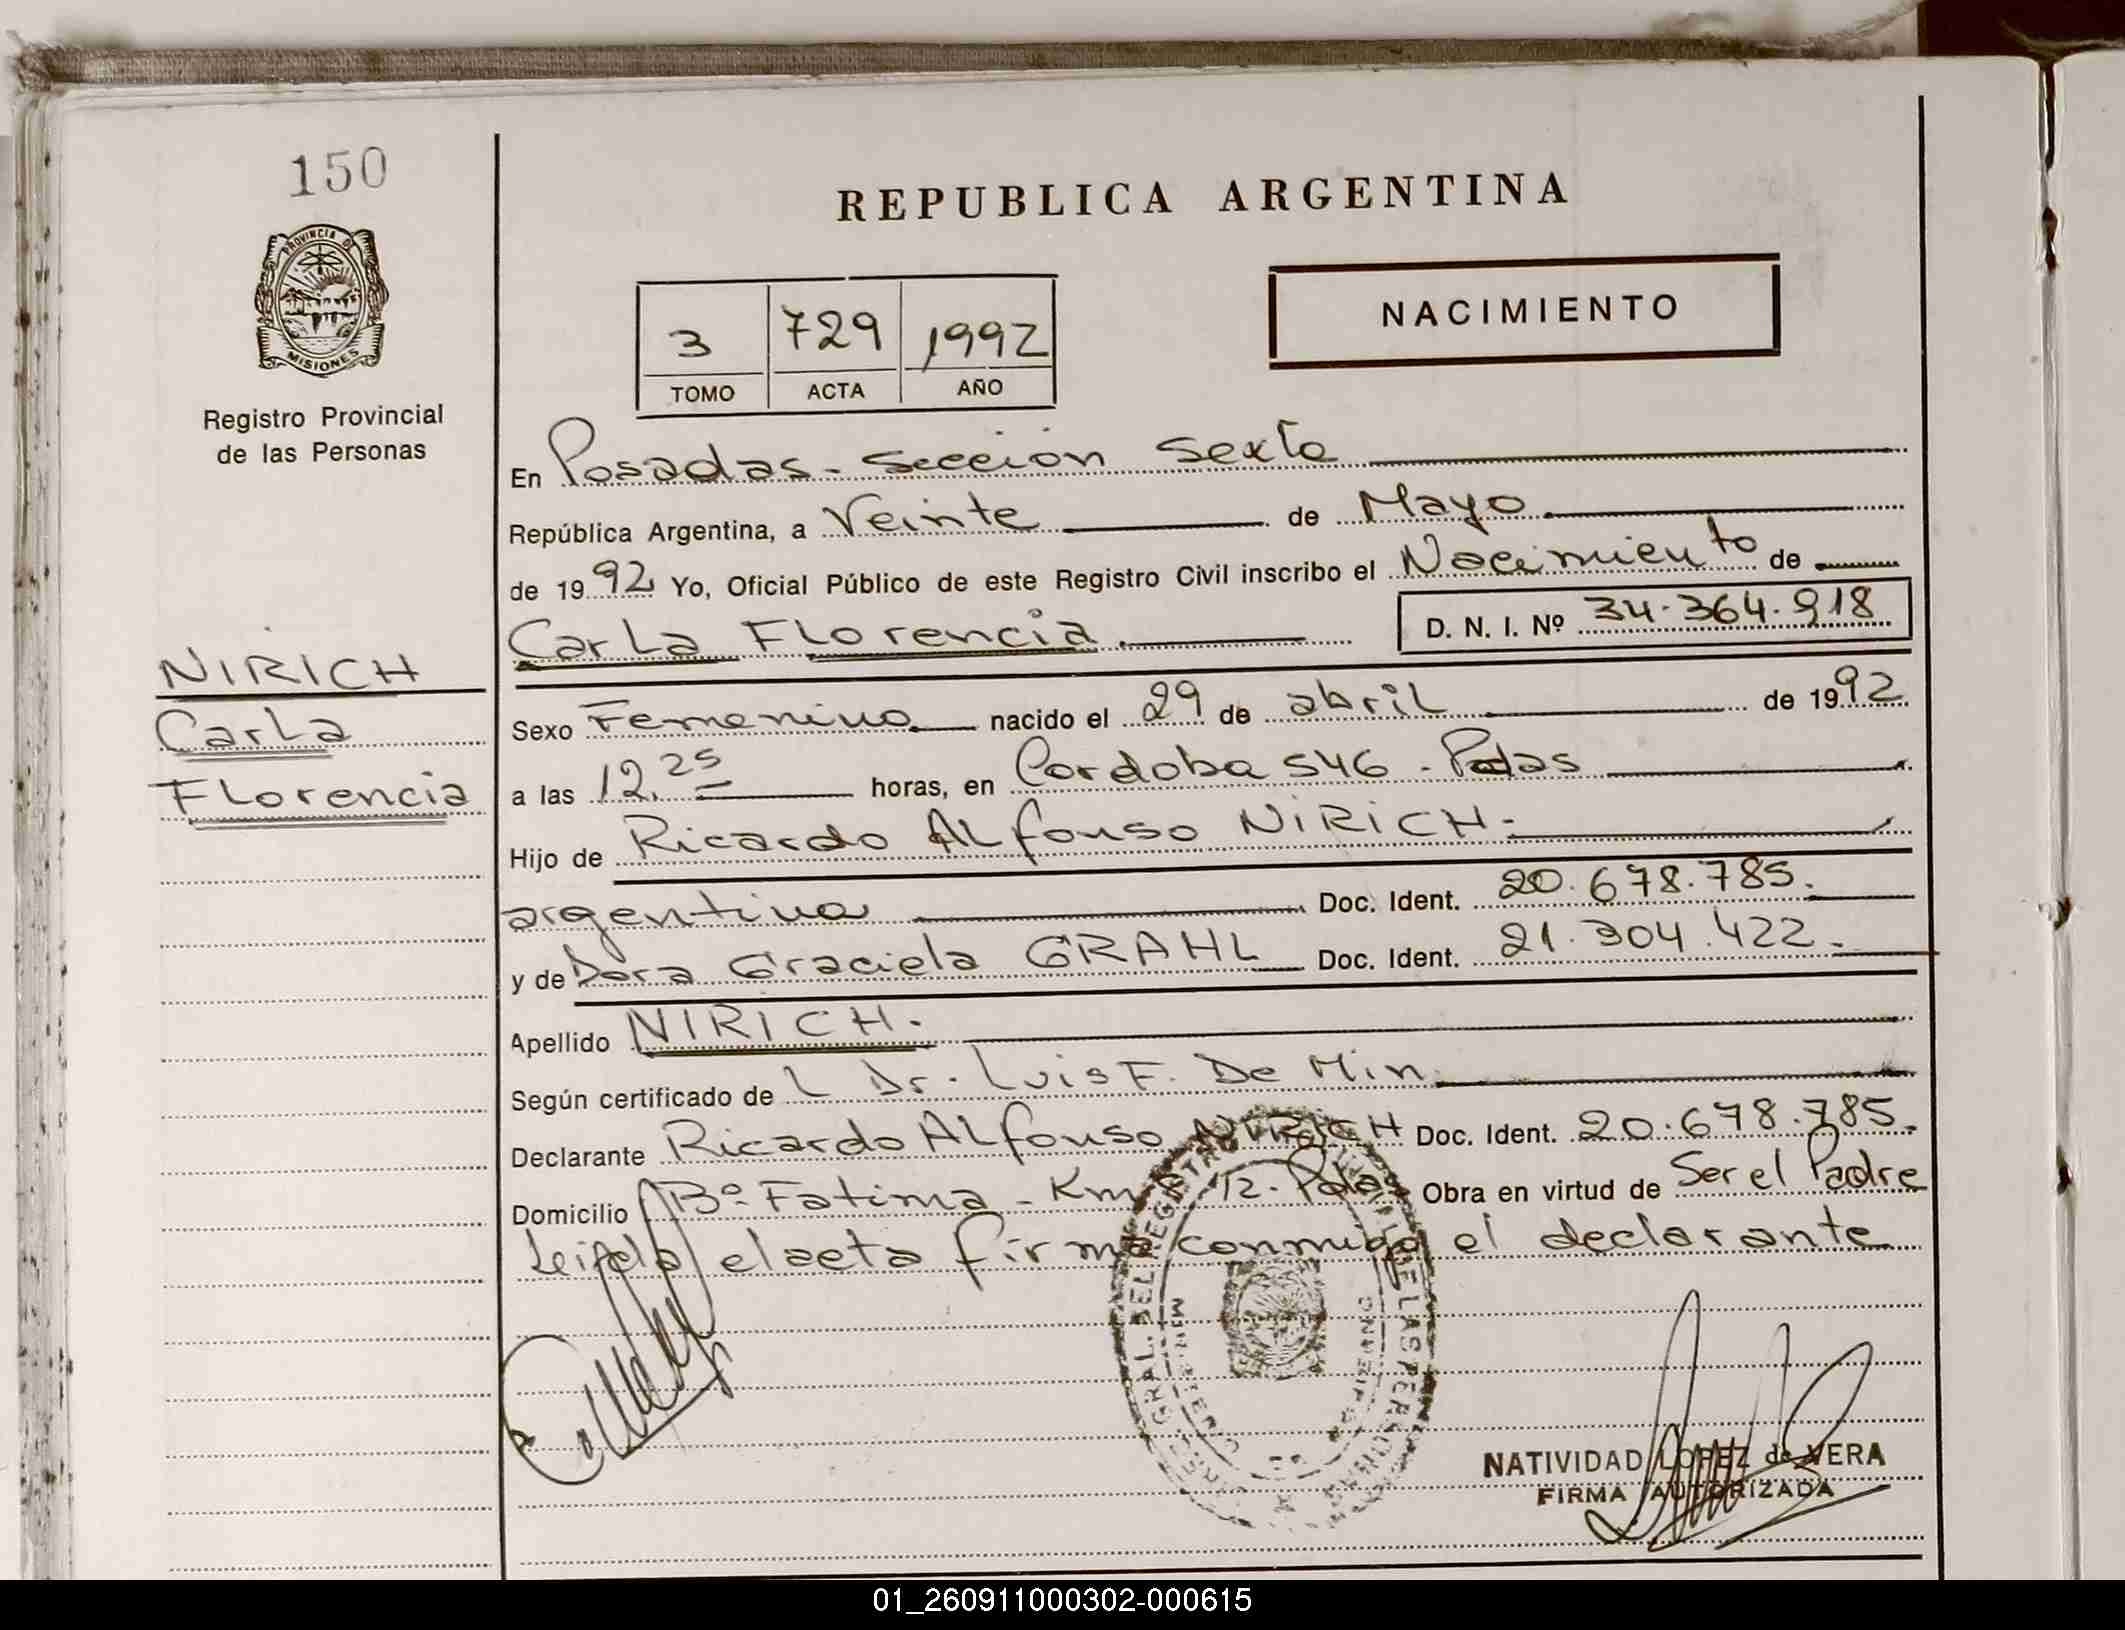 150
REPUBLICA ARGENTINA
PROVINCIA DE
MISIONES
NACIMIENTO
3 729 1992
TOMO ACTA AÑO
Registro Provincial
de las Personas
En Posadas - Sección Sexta
República Argentina, a Veinte de Mayo
de 1992 Yo, Oficial Público de este Registro Civil inscribo el Nacimiento de
Carla Florencia D. N. I. Nº 34.364.918
NIRICH
Carla
Florencia
Sexo Femenino nacido el 29 de abril de 1992
a las 12,25 horas, en Cordoba 546 - Pdas
Hijo de Ricardo ALfonso NIRICH.
argentina Doc. Ident. 20.678.785.
y de Dora Graciela GRAHL Doc. Ident. 21.304.422.
Apellido NIRICH.
Según certificado de L Dr. Luis F. De Min
Declarante Ricardo ALfonso NIRICH Doc. Ident. 20.678.785.
Domicilio Bº Fatima - Km 12 - Pdas Obra en virtud de Ser el Padre
Leida el acta firma conmigo el declarante
GRAL. DEL REGISTRO DE LAS PERSONAS
NATIVIDAD LOPEZ de VERA
FIRMA AUTORIZADA
01_260911000302-000615